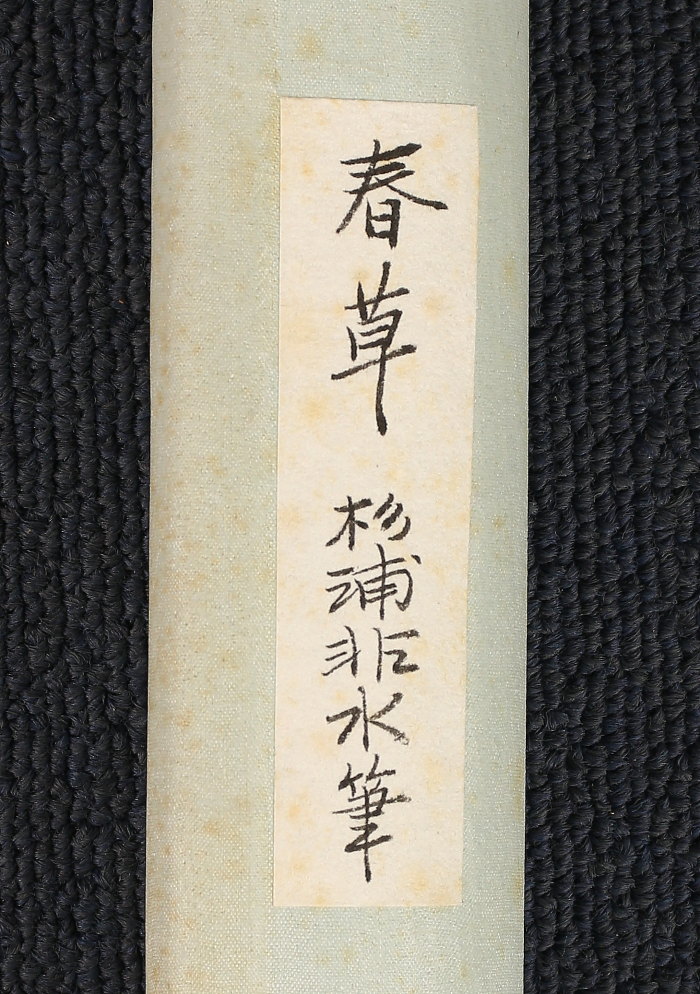 春草 杉浦非水筆